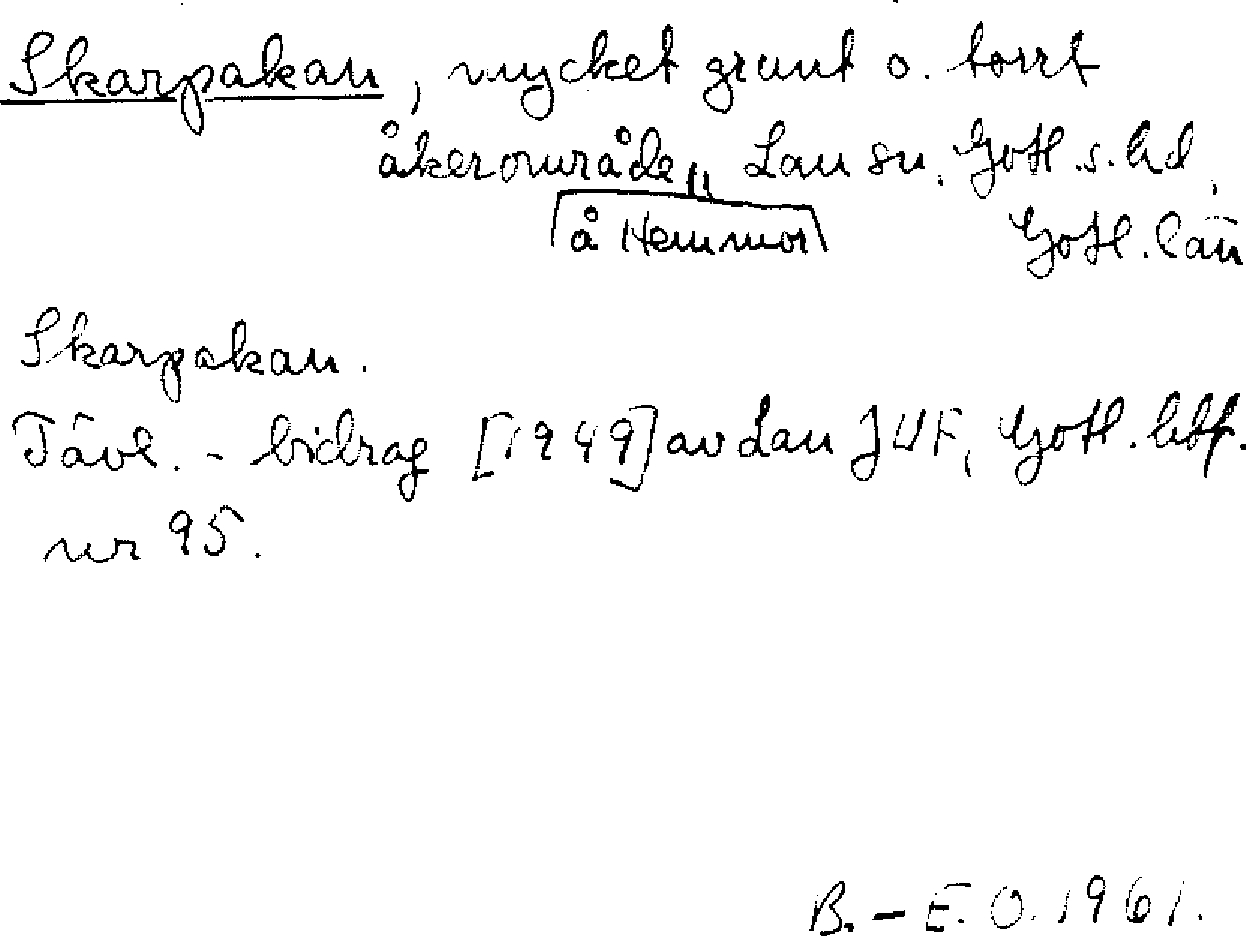 Skarpakau, mycket grunt o. torrt
åkerområde,, Lau sn. Gotl. s. hd,
å Hemmor Gotl. län
Skarpakau.
Tävl. - bidrag [1949] av Lau JUF, Gotl. hbf.
nr 95.
B. - E. O. 1961.